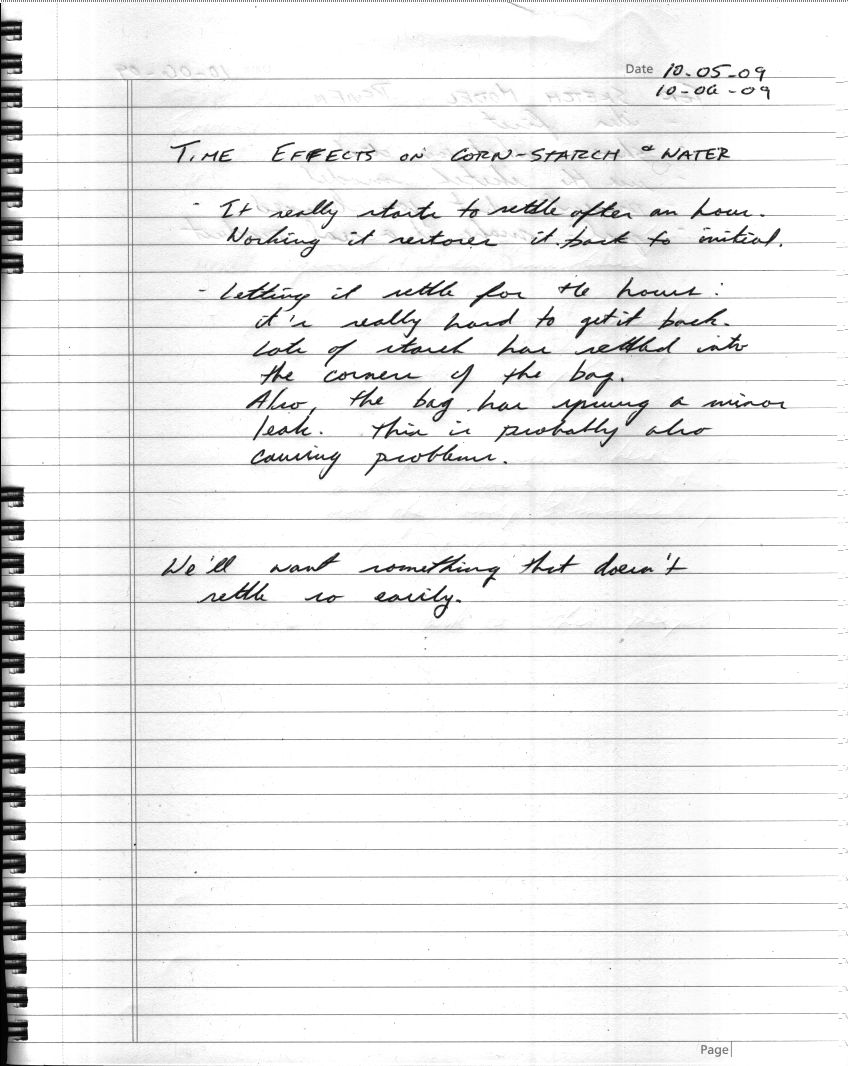 Date 10-05-09
10-06-09
TIME EFFECTS ON CORN-STARCH & WATER
- It really starts to settle after an hour.
Working it restores it back to initial.
- Letting it settle for the hours:
it's really hard to get it back.
Lots of starch has settled into
the corners of the bag.
Also, the bag has sprung a minor
leak. This is probably also
causing problems.
We'll want something that doesn't
settle so easily.
Page